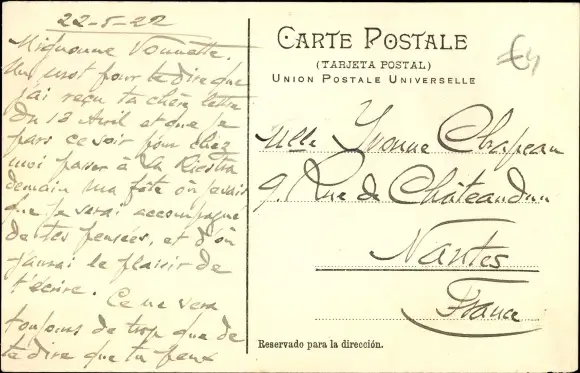 22-5-22
Mignonne Vonnette.
Un mot pour te dire que
j'ai reçu ta chère lettre
du 12 Avril et que je
pars ce soir pour chez
moi passer à La
demain ma fête où je sais
que je serai accompagné
de tes pensées, et d'où
j'aurai le plaisir de
t'écrire. Ce ne sera
toujours de trop que de
te dire que tu peux
CARTE POSTALE
(TARJETA POSTAL)
UNION POSTALE UNIVERSELLE
Mlle Yvonne Chapeau
9. Rue de Châteaudun
Nantes
France
Reservado para la dirección.